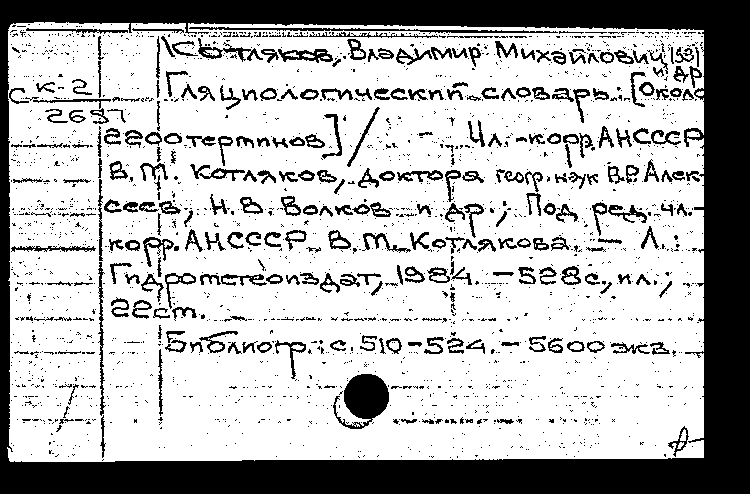 Котляков, Владимир Михайлович
и др.
С к-2
2697
Гляциологический словарь: [Около
2200 терминов] / - Чл.-корр. АН СССР
В.М. Котляков, доктора геогр. наук В.Р. Алек-
сеев, Н.В. Волков и др.; Под ред. чл.-
корр. АН СССР В.М. Котлякова. — Л.:
Гидрометеоиздат, 1984. - 528с., ил.;
22 см.
Библиогр.: с. 510-524. - 5600 экз.